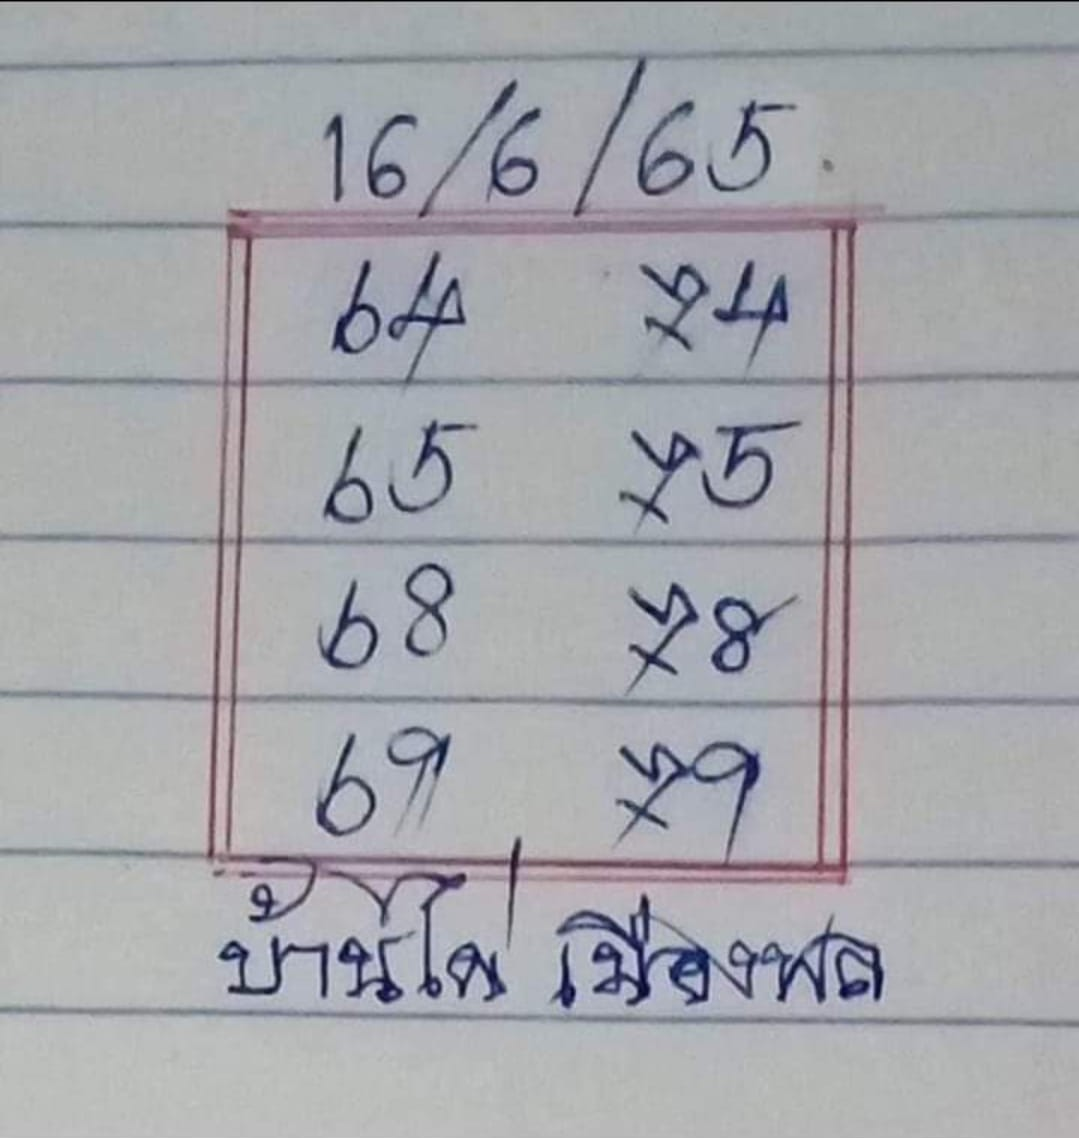 16/6/65
64 74
65 75
68 78
69 79
บ้านไผ่ เมืองพล